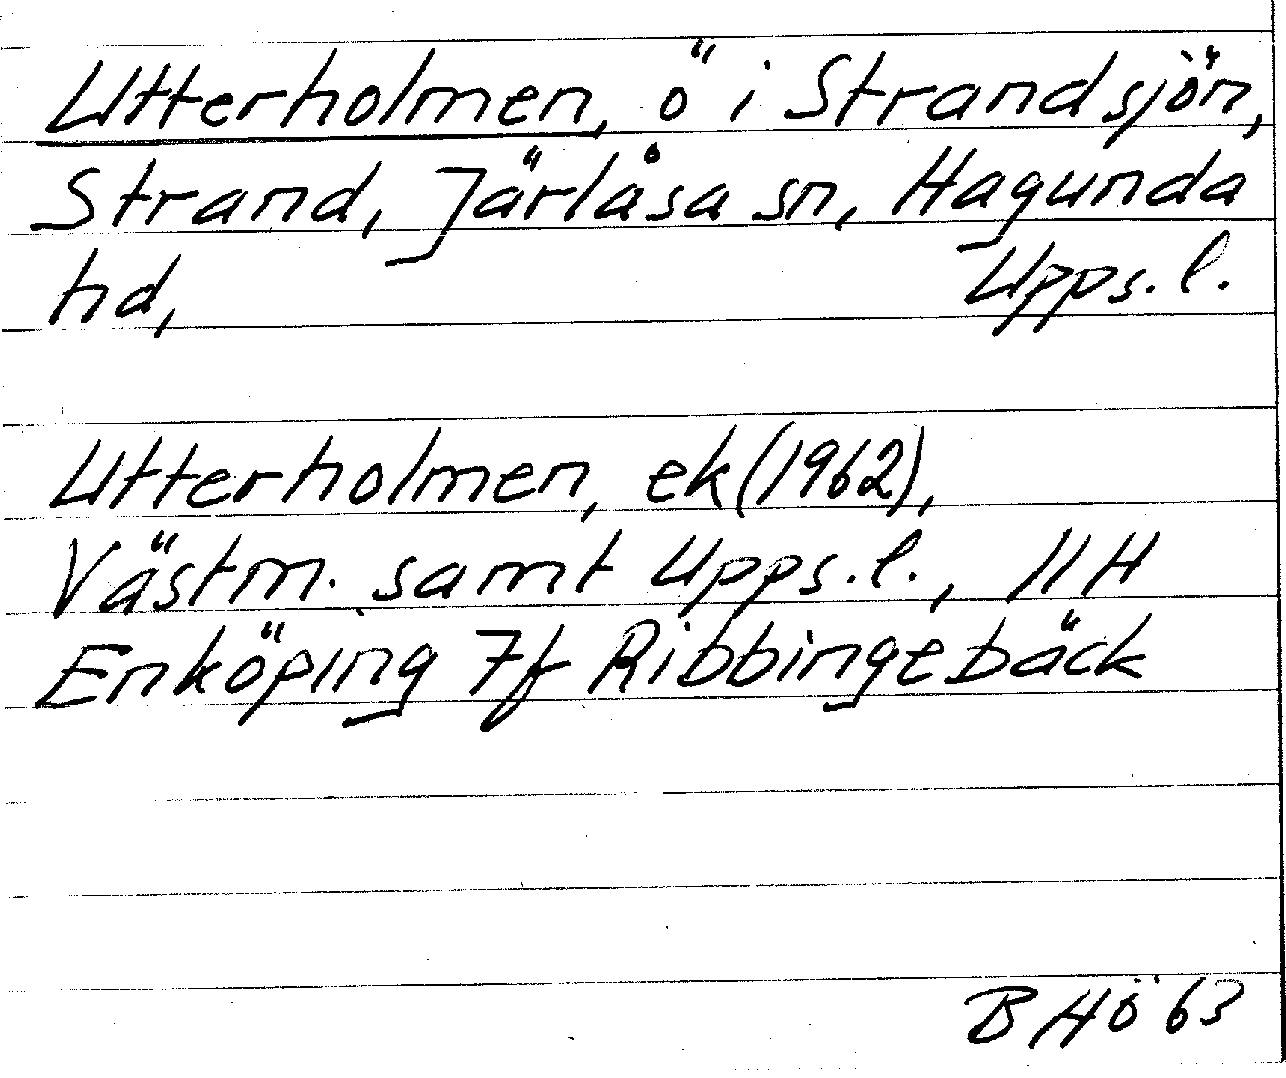 Utterholmen, ö i Strandsjön,
Strand, Järlåsa sn, Hagunda
hd, Upps. l.
Utterholmen, ek (1962),
Västm. samt Upps. l., 11 H
Enköping 7f Ribbingebäck
B Hö 63